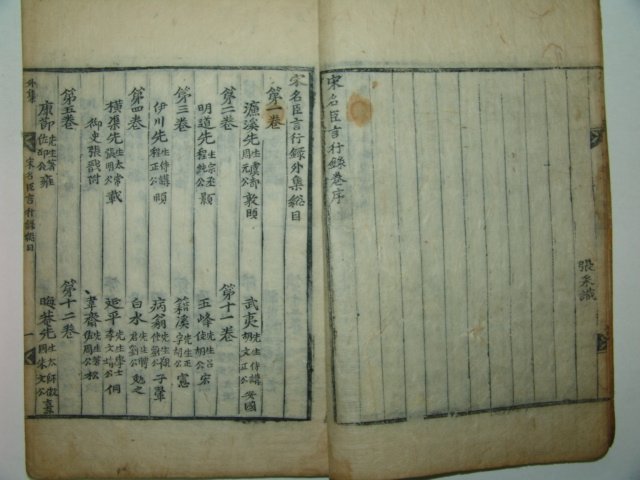 張采識
宋名臣言行錄卷序
宋名臣言行錄外集總目
第一卷
濂溪先生虞部周元公敦頤
第二卷
明道先生宗丞程純公顥
第三卷
伊川先生侍講程正公頤
第四卷
橫渠先生太常張明公載
御史張戩附
第五卷
康節先生著作邵公雍
武夷先生侍講胡文定公安國
第十一卷
五峰先生胡公宏
籍溪先生正字胡公憲
病翁先生劉公子翬
白水先生聘君劉公勉之
延平先生李文靖公侗
韋齋先生朱公松
第十二卷
晦菴先生太師徽國朱文公熹
外集
宋名臣言行錄總目